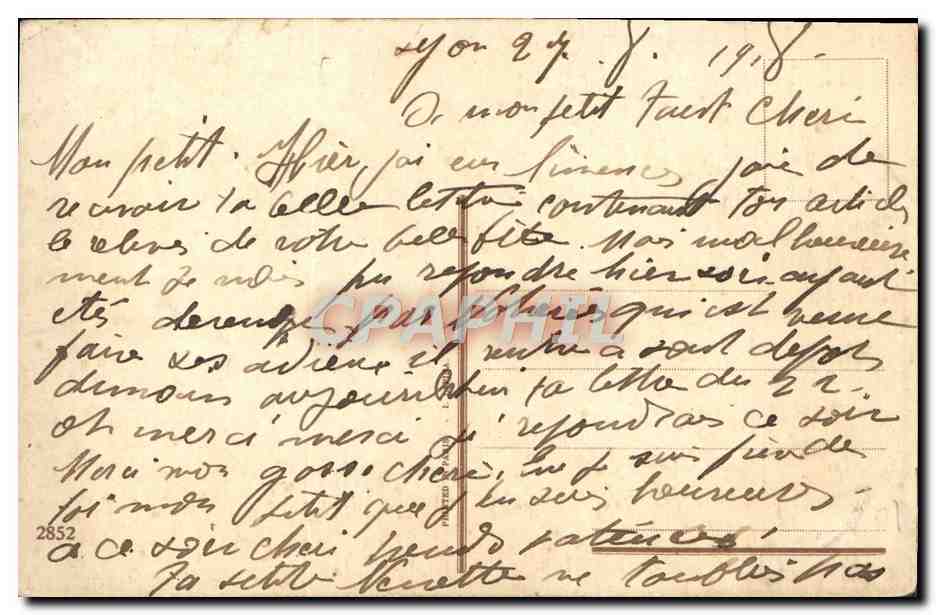 Lyon 27. 8. 1918.
mon petit Chéri
Mon petit. Hier, j'ai eu l'immense joie de
recevoir ta belle lettre contenant ton
de votre belle fête. Mais malheureuse
ment je n'ai pu repondre hier soir ayant
étés par qui est venue
faire ses adieux il rentre a son depots
aujourd'hui ta lettre du 22.
et merci merci je repondrais ce soir
Merci mon gosse cheri, que je suis fier de
toi mon petit que j'en suis heureuse
2852
a ce soir cheri, prends patience,
Ta petite ne t'oublies pas
PRINTED
CPAPHIL